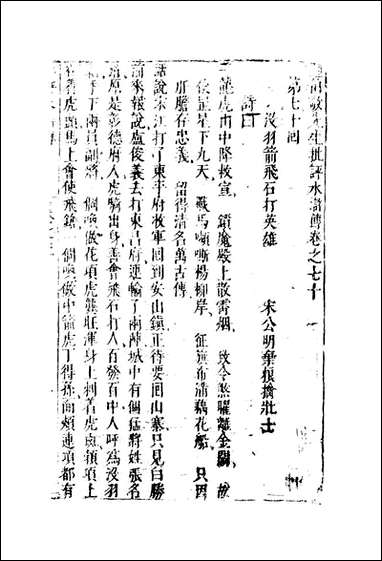 李卓吾先生批評水滸傳卷之七十
第七十回
沒羽箭飛石打英雄　宋公明棄糧擒壯士
詩曰
龍虎山中降敕宣　鎖魔殿上散霄烟　致令煞曜離金闕　故
使罡星下九天　戰馬嘶嘶楊柳岸　征旗布滿藕花船　只因
肝膽存忠義　留得清名萬古傳
話說宋江打了東平府收軍回到安山鎮正待要回山寨只見白勝
前來報說盧俊義去打東昌府連輸了兩陣城中有個猛將姓張名
清原是彰德府人虎騎出身善會飛石打人百發百中人呼為沒羽
箭手下兩員副將一個喚做花項虎龔旺渾身上刺着虎斑頷項上
吞着虎頭馬上會使飛鎗一個喚做中箭虎丁得孫面頰連項都有